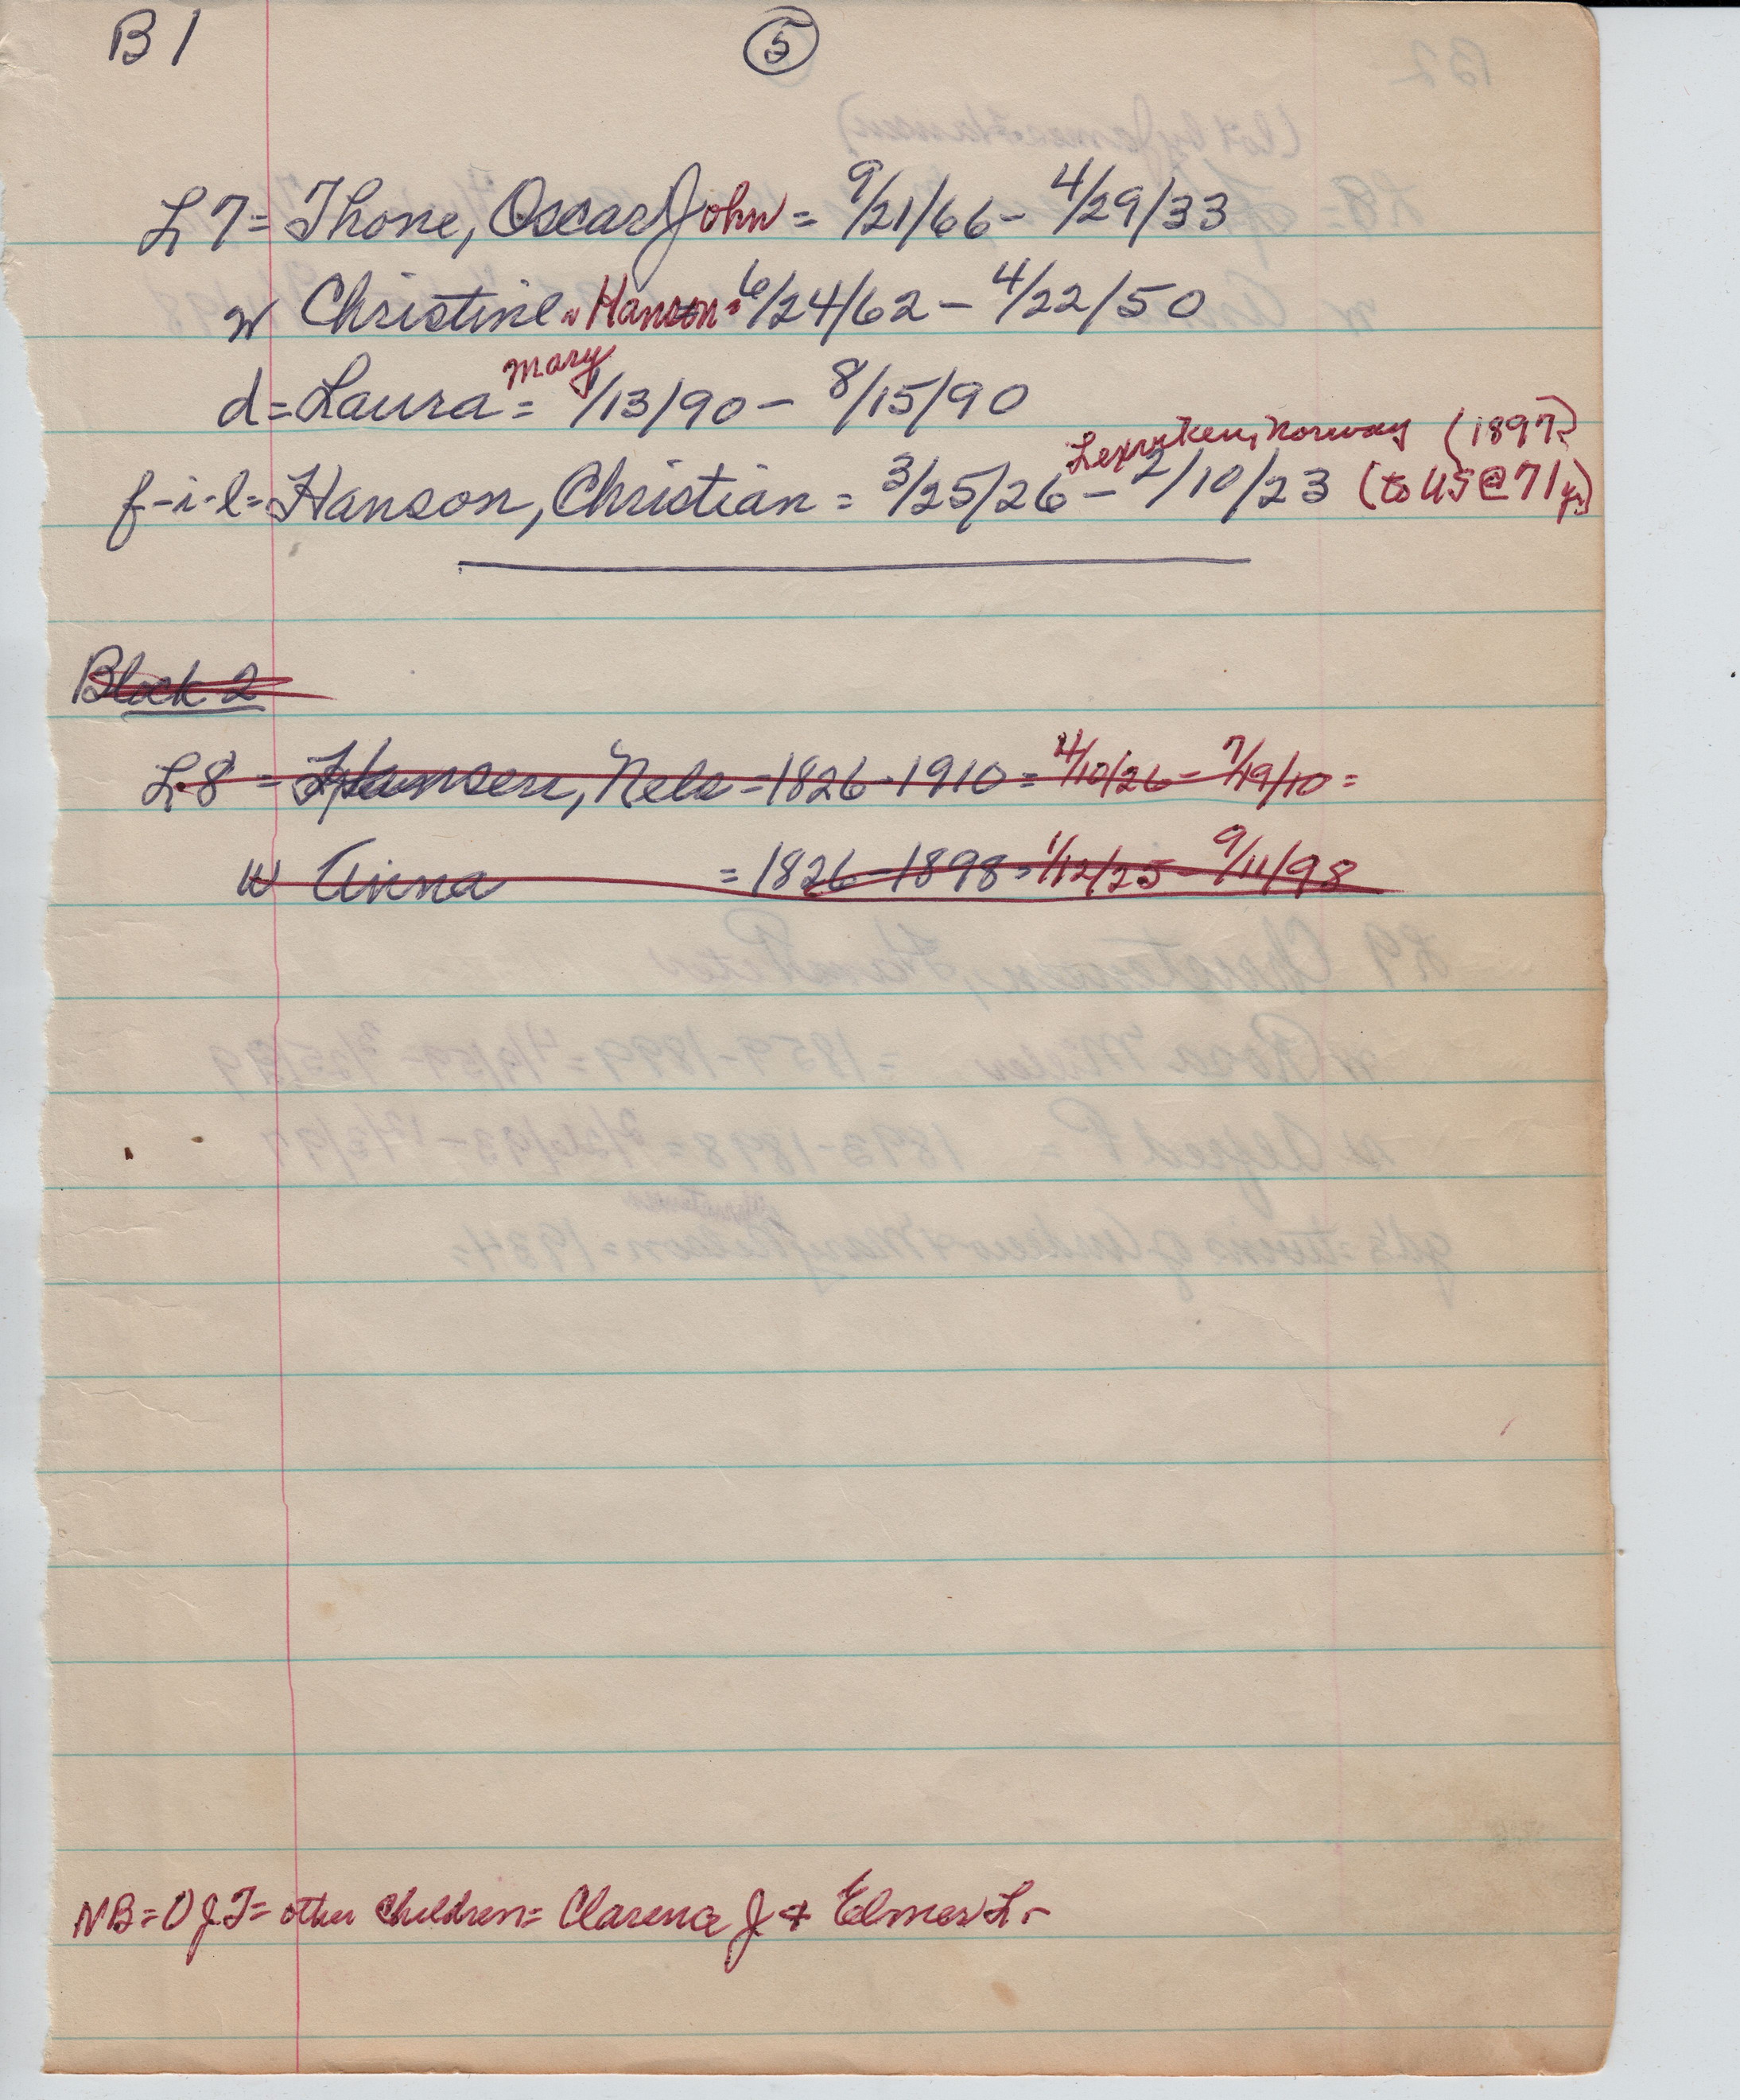 B 1
5
L 7 = Thone, Oscar John = 9/21/66 - 4/29/33
w Christine - Hanson = 6/24/62 - 4/22/50
Mary
d = Laura = 1/13/90 - 8/15/90
Norway (1897)
f-i-l = Hanson, Christian = 3/25/26 - 2/10/23 (to US @ 71 yr)
Block 2
L 8 = Hansen, Nels = 1826 - 1910 = 4/10/26 - 7/19/10 =
w Anna = 1826 - 1898 = 1/12/25 - 9/11/98
NB = O J T = other children = Clarence J + Elmer L -